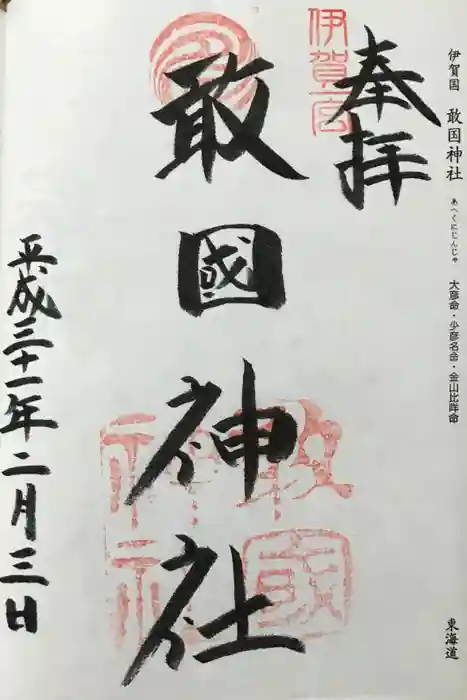 伊賀国 敢国神社 あへくにじんじゃ 大彦命・少彦名命・金山比咩命
東海道
奉拝
伊賀一宮
敢國神社
敢國神社
平成三十一年二月三日